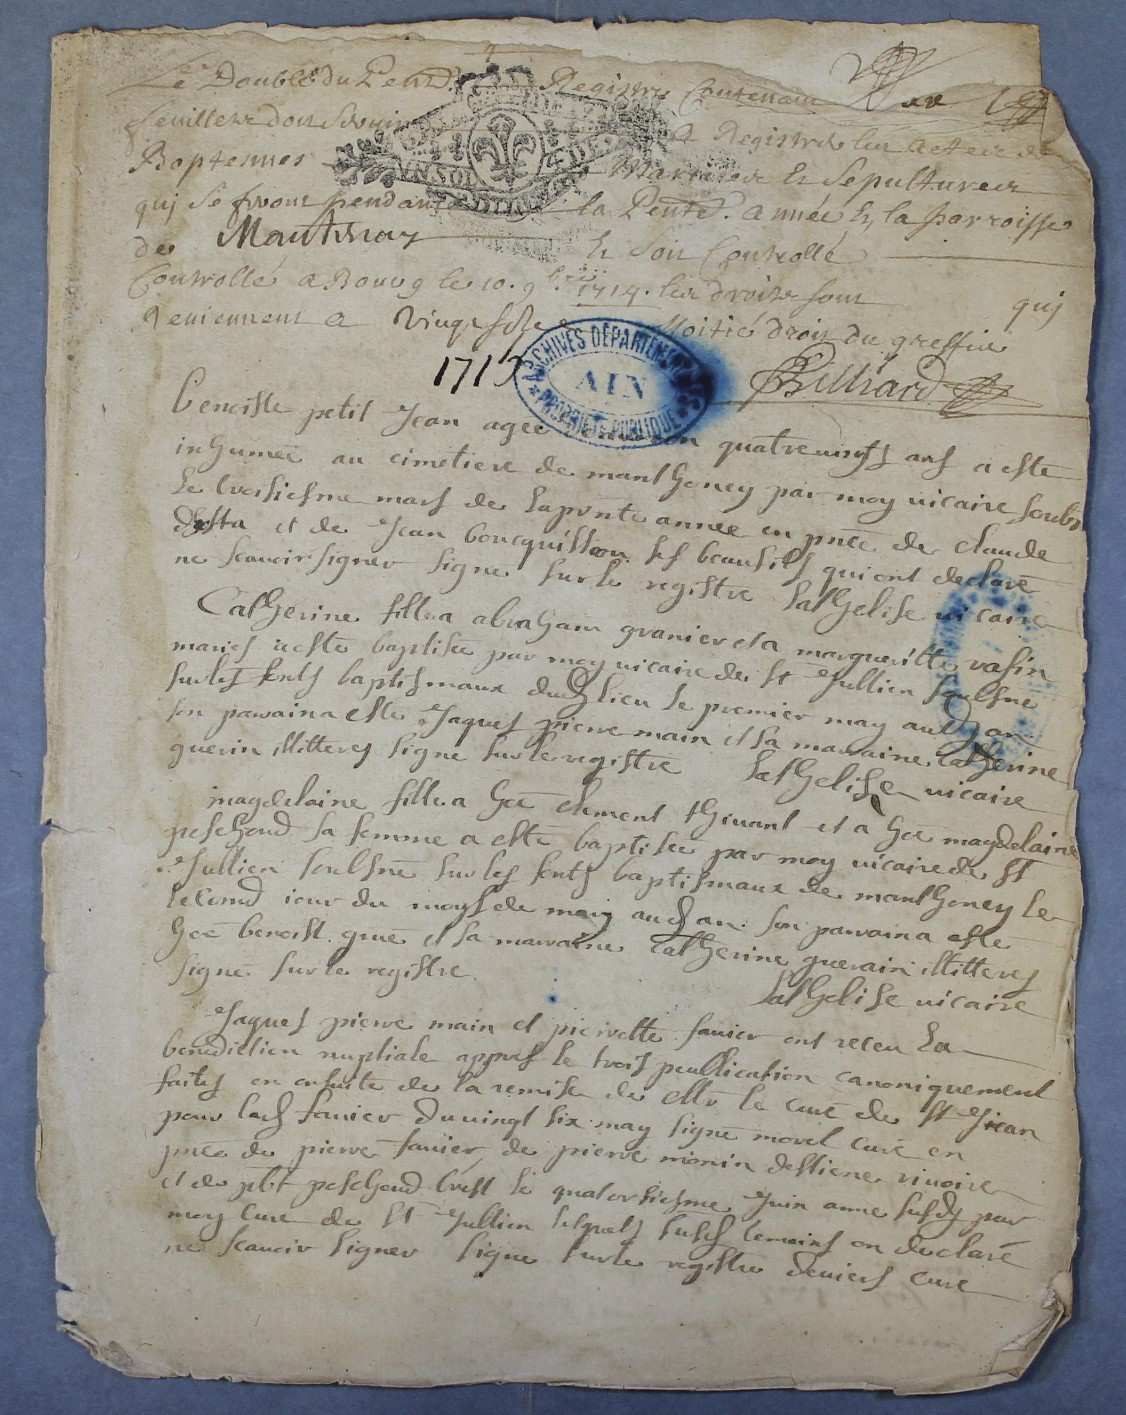 Le Double du Pent. Registre Contenant
feuillets dont
a Registrer les actes de
Baptesmes Mariages Et Sepultures
qui se feront pendant la Pente. année En la parroisse
de Mantenay Et Soit Controllé
Controllé a Bourg le 10. 9b. 1714. les droits sont qui
Reviennent a vingt Moitié droit du greffier
1715
Billiard
ARCHIVES DÉPARTEMENTALES
AIN
PROPRIÉTÉ PUBLIQUE
benoiste petit Jean agee quatrevingts ans a esté
inhumeé au cimetiere de manthoney par moy vicaire soubs
le troisiesme mars de la pnte année en pnce de claude
et de Jean boucquillon ses beaufils qui ont declaré
ne scauoir signer signé sur le registre Lathelise vicaire
Catherine fille a abraham granier et a margueritte vasin
mariés a esté baptisée par moy vicaire de st Jullien soubsné
sur les fonts baptismaux dud lieu le premier may aud an
son parrain a esté Jaques pierre main et sa marraine catherine
guerin illitterés signé sur le registre Lathelise vicaire
magdelaine fille a hoē clement thivant et a hoē magdelaine
peschoud sa femme a esté baptisée par moy vicaire de st
Jullien soubsné sur les fonts baptismaux de manthoney le
second iour du moys de may aud an. son parrain a esté
hoē benoist grue et sa marraine catherine guerain illitterés
signé sur le registre.
Lathelise vicaire
Jaques pierre main et pierrette favier ont receu La
benediction nuptiale appres le trois peublication canoniquement
faites en ensuite de la remise de Mr le curé de st Jean
pour lad favier du vingt six may signé morel curé en
pnce de pierre favier, de pierre monin destiene rivoire
et de pbt peschoud Brest le quatorsiesme Juin anne susd par
moy curé de st Jullien lesquels susd temoins on declaré
ne scauoir signer signé sur le registre deniers curé